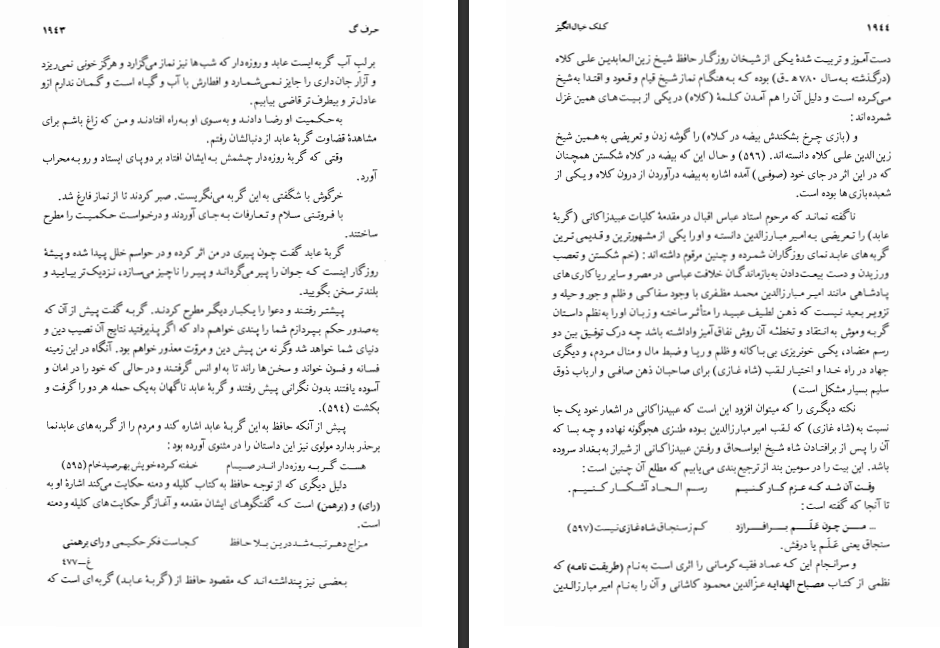 حرف گ ۱۹۴۳
بر لب آب گربه ایست عابد و روزه دار که شب ها نیز نماز می‌گزارد و هرگز خونی نمی‌ریزد
و آزار جان داری را جایز نـمی‌شمـارد و افطارش با آب و گیاه است و گمـان ندارم ازو
عادل تر و بیطرف تر قاضی بیابیم.
به حکمیت او رضا دادند و به سوی او به راه افتادند و من که زاغ باشم برای
مشاهدهٔ قضاوت گربهٔ عابد از دنبالشان رفتم.
وقتی که گربهٔ روزه دار چشمش به ایشان افتاد بر دو پای ایستاد و رو به محراب
آورد.
خرگوش با شگفتی به این گربه می‌نگریست. صبر کردند تا از نماز فارغ شد.
با فروتنی سلام و تعارفات به جای آوردند و درخواست حکمیت را مطرح
ساختند.
گربهٔ عابد گفت چون پیری در من اثر کرده و در حواسم خلل پیدا شده و پیشهٔ
روزگار اینست که جوان را پیر می‌گرداند و پیر را ناچیز می‌سازد، نزدیک تر بیایید و
بلندتر سخن بگویید.
پیشتر رفتند و دعوا را یکبار دیگر مطرح کردند. گربه گفت پیش از آن که
به صدور حکم بپردازم شما را پندی خواهم داد که اگر پذیرفتید نتایج آن نصیب دین و
دنیای شما خواهد شد وگر نه من پیش دین و مروّت معذور خواهم بود. آنگاه در این زمینه
فسانه و فسون خواند و سخن ها راند تا به او انس گرفتند و در حالی که خود را در امان و
آسوده یافتند بدون نگرانی پیش رفتند و گربهٔ عابد ناگهان به یک حمله هر دو را گرفت و
بکشت (۵۹۴).
پیش از آنکه حافظ به این گربهٔ عابد اشاره کند و مردم را از گربه های عابدنما
برحذر بدارد مولوی نیز این داستان را در مثنوی آورده بود:
هست گربه روزه دار اندر صیام خفته کرده خویش بهر صید خام (۵۹۵)
دلیل دیگری که از توجه حافظ به کتاب کلیله و دمنه حکایت می‌کند اشارهٔ او به
(رای) و (برهمن) است که گفتگوهای ایشان مقدمه و آغازگر حکایت های کلیله و دمنه
است.
مزاج دهر تبه شد درین بلا حافظ کجاست فکر حکیمی و رای برهمنی
غ—۴۷۷
بعضی نیز پنداشته اند که مقصود حافظ از (گربهٔ عابد) گربه ای است که
کلک خیال انگیز ۱۹۴۴
دست آموز و تربیت شدهٔ یکی از شیخان روزگار حافظ شیخ زین العابدین علی کلاه
(درگذشته به سال ۷۸۰ هـ.ق) بوده که به هنگام نماز شیخ قیام و قعود و اقتدا به شیخ
می‌کرده است و دلیل آن را هم آمدن کلمهٔ (کلاه) در یکی از بیت های همین غزل
شمرده اند:
و (بازی چرخ بشکندش بیضه در کلاه) را گوشه زدن و تعریضی به همین شیخ
زین الدین علی کلاه دانسته اند. (۵۹۶) و حال این که بیضه در کلاه شکستن همچنان
که در این اثر در جای خود (صوفی) آمده اشاره به بیضه درآوردن از درون کلاه و یکی از
شعبده بازی ها بوده است.
ناگفته نماند که مرحوم استاد عباس اقبال در مقدمهٔ کلیات عبیدزاکانی (گربهٔ
عابد) را تعریضی به امیر مبارزالدین دانسته و او را یکی از مشهورترین و قدیمی ترین
گربه های عابد نمای روزگاران شمرده و چنین مرقوم داشته اند: (خم شکستن و تعصب
ورزیدن و دست بیعت دادن به بازماندگان خلافت عباسی در مصر و سایر ریاکاری های
پادشاهی مانند امیر مبارزالدین محمد مظفری با وجود سفاکی و ظلم و جور و حیله و
تزویر بعید نیست که ذهن لطیف عبید را متأثر ساخته و زبان او را به نظم داستان
گربه و موش به انتقاد و تخطئهٔ آن روش نفاق آمیز واداشته باشد چه درک توفیق بین دو
رسم متضاد، یکی خونریزی بی باکانه و ظلم و ریا و ضبط مال و منال مردم، و دیگری
جهاد در راه خدا و اختیار لقب (شاه غازی) برای صاحبان ذهن صافی و ارباب ذوق
سلیم بسیار مشکل است)
نکته دیگری را که میتوان افزود این است که عبیدزاکانی در اشعار خود یک جا
نسبت به (شاه غازی) که لقب امیر مبارزالدین بوده طنزی هجوگونه نهاده و چه بسا که
آن را پس از برافتادن شاه شیخ ابواسحاق و رفتن عبیدزاکانی از شیراز به بغداد سروده
باشد. این بیت را در سومین بند از ترجیع بندی می‌یابیم که مطلع آن چنین است:
وقت آن شد که عزم کار کنیم رسم الحاد آشکار کنیم.
تا آنجا که گفته است:
... من چون عَلَم برافرازد کم ز سنجاق شاه غازی نیست (۵۹۷)
سنجاق یعنی عَلَم یا درفش.
و سرانجام این که عماد فقیه کرمانی را اثری است به نام (طریقت نامه) که
نظمی از کتاب مصباح الهدایه عزّالدین محمود کاشانی و آن را به نام امیر مبارزالدین